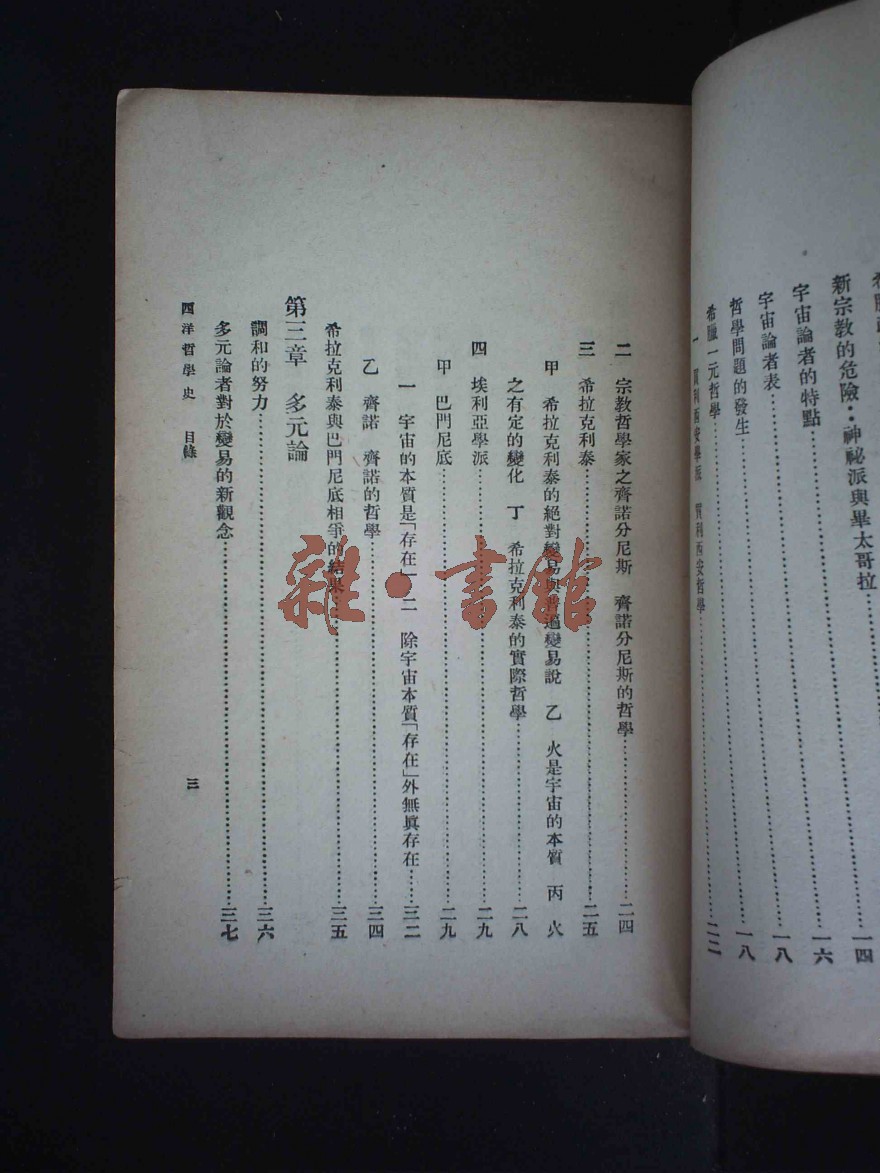 新宗教的危險：神祕派與畢太哥拉……一四
宇宙論者的特點……一六
宇宙論者表……一八
哲學問題的發生……一八
希臘一元哲學
一 買利西安學派 買利西安哲學……二二
二 宗教哲學家之齊諾分尼斯 齊諾分尼斯的哲學……二四
三 希拉克利泰……二五
甲 希拉克利泰的絕對變易與普遍變易說 乙 火是宇宙的本質 丙 火
之有定的變化 丁 希拉克利泰的實際哲學……二八
四 埃利亞學派……二九
甲 巴門尼底……二九
一 宇宙的本質是「存在」 二 除宇宙本質「存在」外無眞存在……三二
乙 齊諾 齊諾的哲學……三四
希拉克利泰與巴門尼底相爭的結果……三五
第三章 多元論
調和的努力……三六
多元論者對於變易的新觀念……三七
西洋哲學史 目錄
三
雜·書館